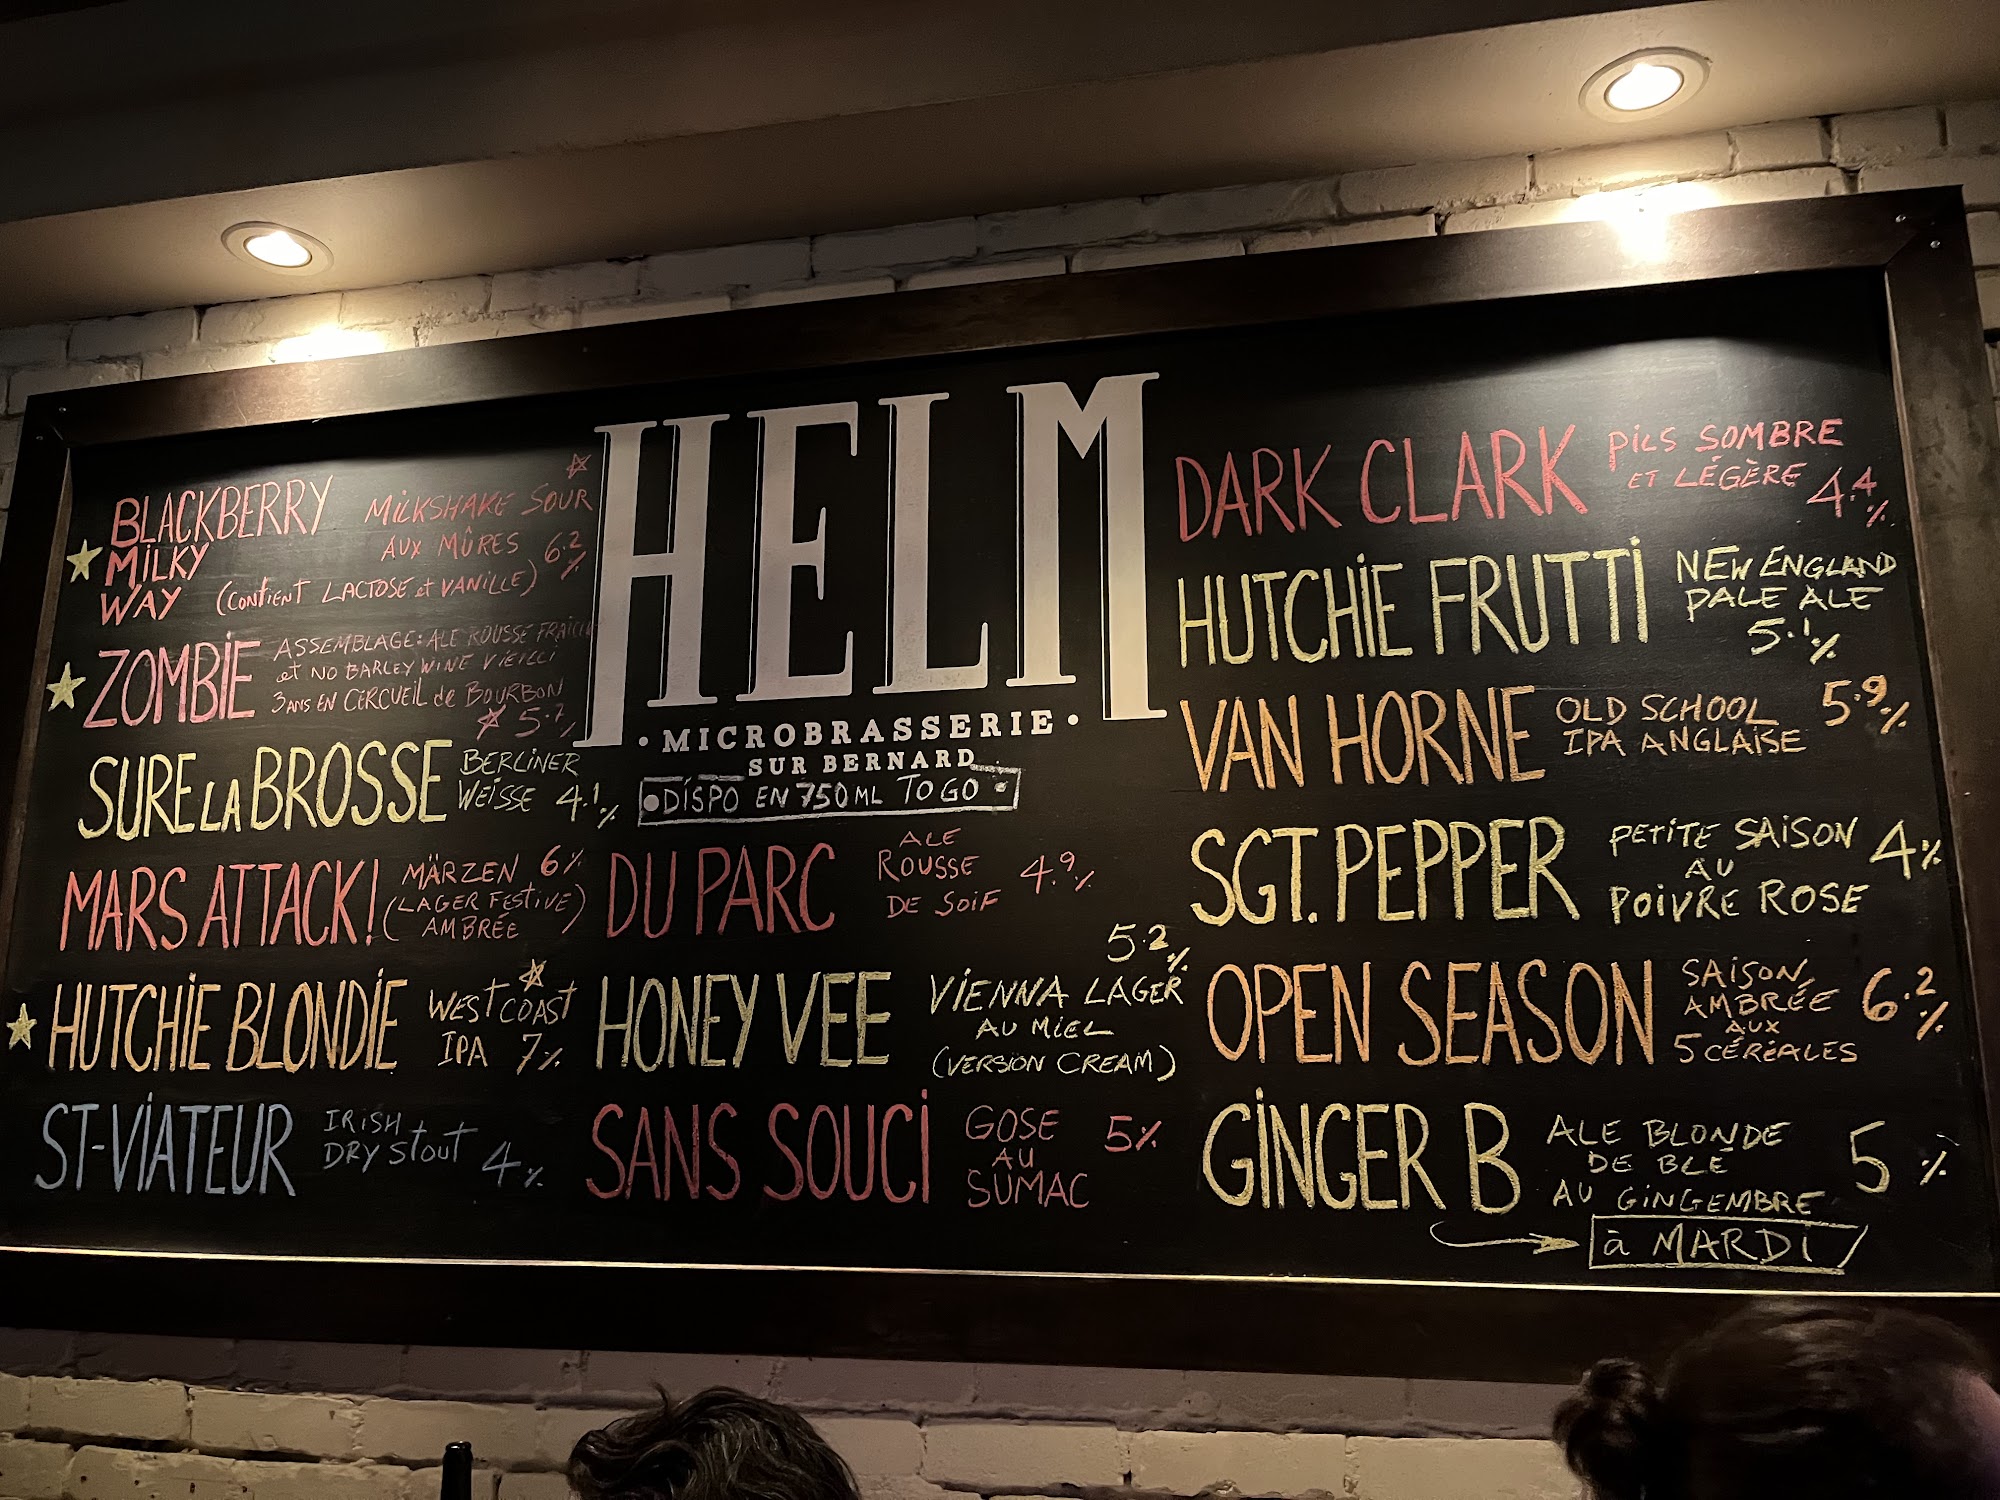 BLACKBERRY
MILKY
WAY
MILKSHAKE SOUR
AUX MÛRES 6.2%
(CONTIENT LACTOSE et VANILLE)
ZOMBIE
ASSEMBLAGE: ALE ROUSSE FRAICHE
et NO BARLEY WINE VIEILLI
3 ANS EN CERCUEIL de BOURBON
5.7%
SURE LA BROSSE
BERLINER
WEISSE 4.1%
MARS ATTACK!
MÄRZEN 6%
(LAGER FESTIVE)
AMBRÉE
HUTCHIE BLONDIE
WEST COAST
IPA 7%
ST-VIATEUR
IRISH
DRY STOUT 4%
HELM
• MICROBRASSERIE •
SUR BERNARD
• DISPO EN 750ML TO GO •
DU PARC
ALE
ROUSSE
DE SOIF
4.9%
HONEY VEE
5.2%
VIENNA LAGER
AU MIEL
(VERSION CREAM)
SANS SOUCI
GOSE
AU
SUMAC
5%
DARK CLARK
PILS SOMBRE
ET LÉGÈRE 4.4%
HUTCHIE FRUTTI
NEW ENGLAND
PALE ALE
5.1%
VAN HORNE
OLD SCHOOL
IPA ANGLAISE
5.9%
SGT. PEPPER
PETITE SAISON
AU
POIVRE ROSE
4%
OPEN SEASON
SAISON
AMBRÉE
AUX
5 CÉRÉALES
6.2%
GINGER B
ALE BLONDE
DE BLÉ
AU GINGEMBRE
5%
à MARDI